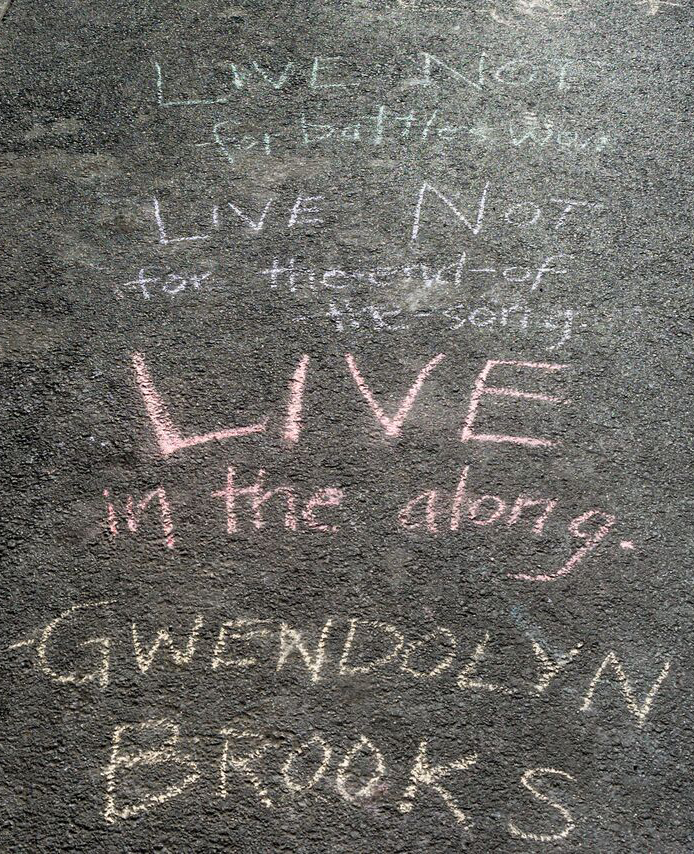 LIVE NOT
for battles won
LIVE NOT
for the-end-of
-the-song.
LIVE
in the along.
GWENDOLYN
BROOKS